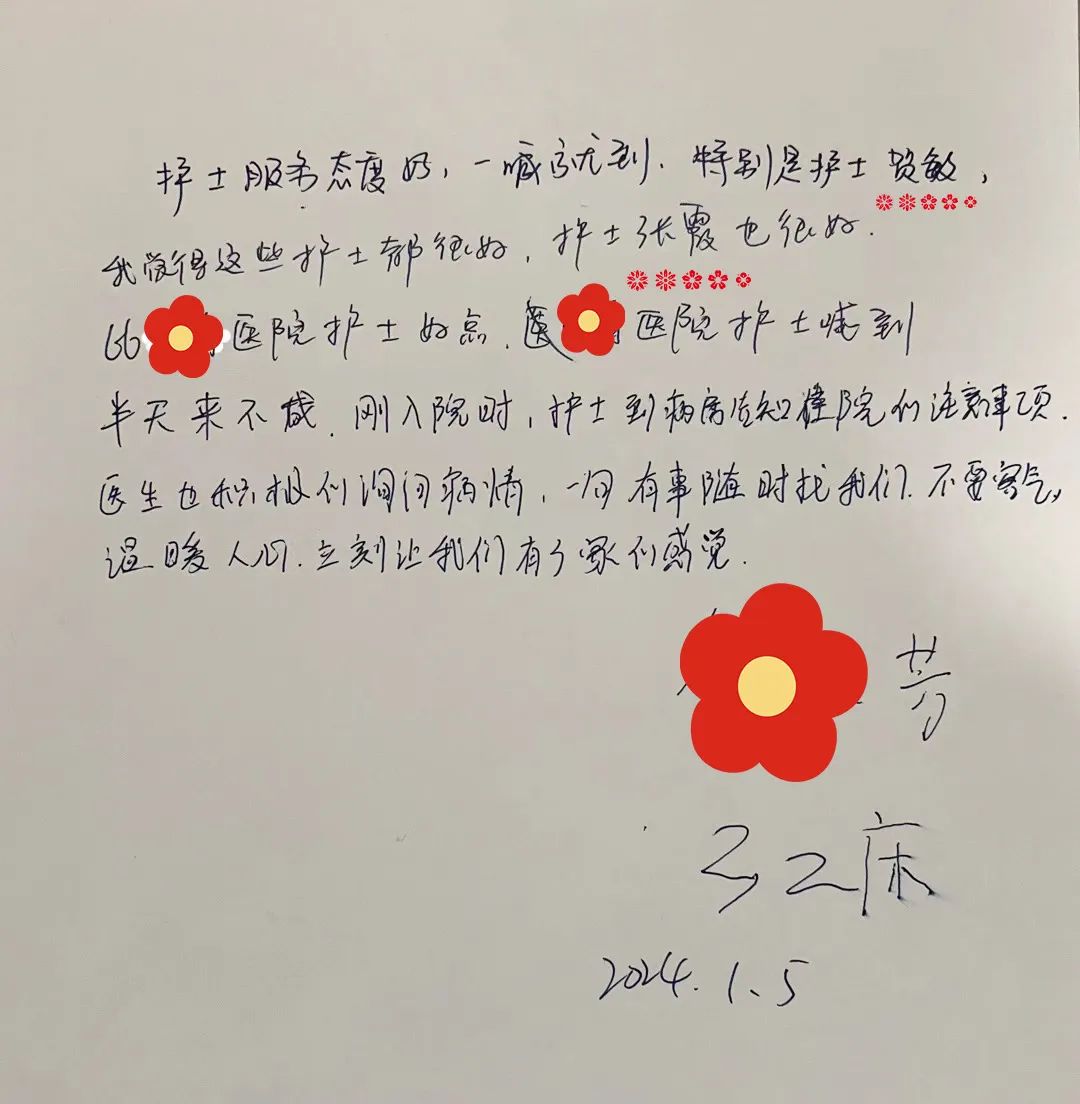 护士服务态度好,一喊就到.特别是护士贺敏,
我觉得这些护士都很好,护士张霞也很好.
比 医院护士好点. 医院护士喊到
半天来不咸.刚入院时,护士到病房告知 院们注意事项.
医生也积极们询问病情,一句有事随时找我们.不要客气,
温暖人心.立刻让我们有了家们感觉.
芳
32床
2024.1.5